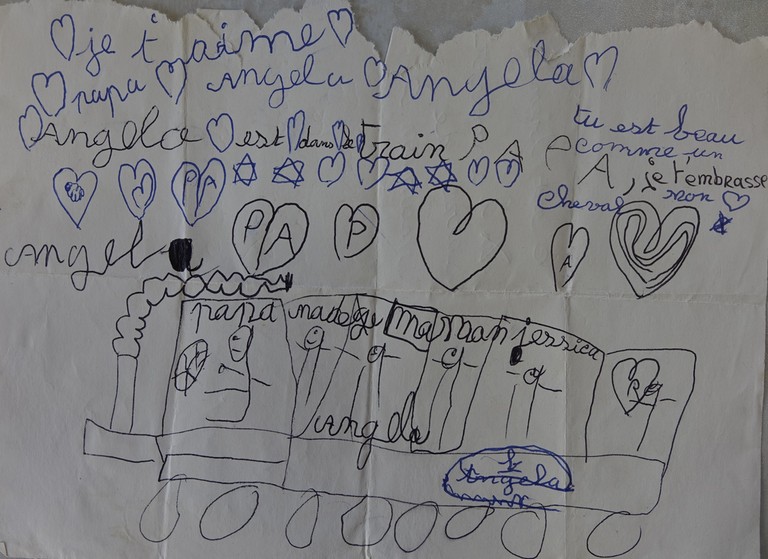 je t'aime
papa Angela Angela
Angela est dans le train P A P A
tu est beau
comme un
cheval
, je t'embrasse
mon
PA
PA P A
Angela
papa nadege maman jessica
Angela
Angela